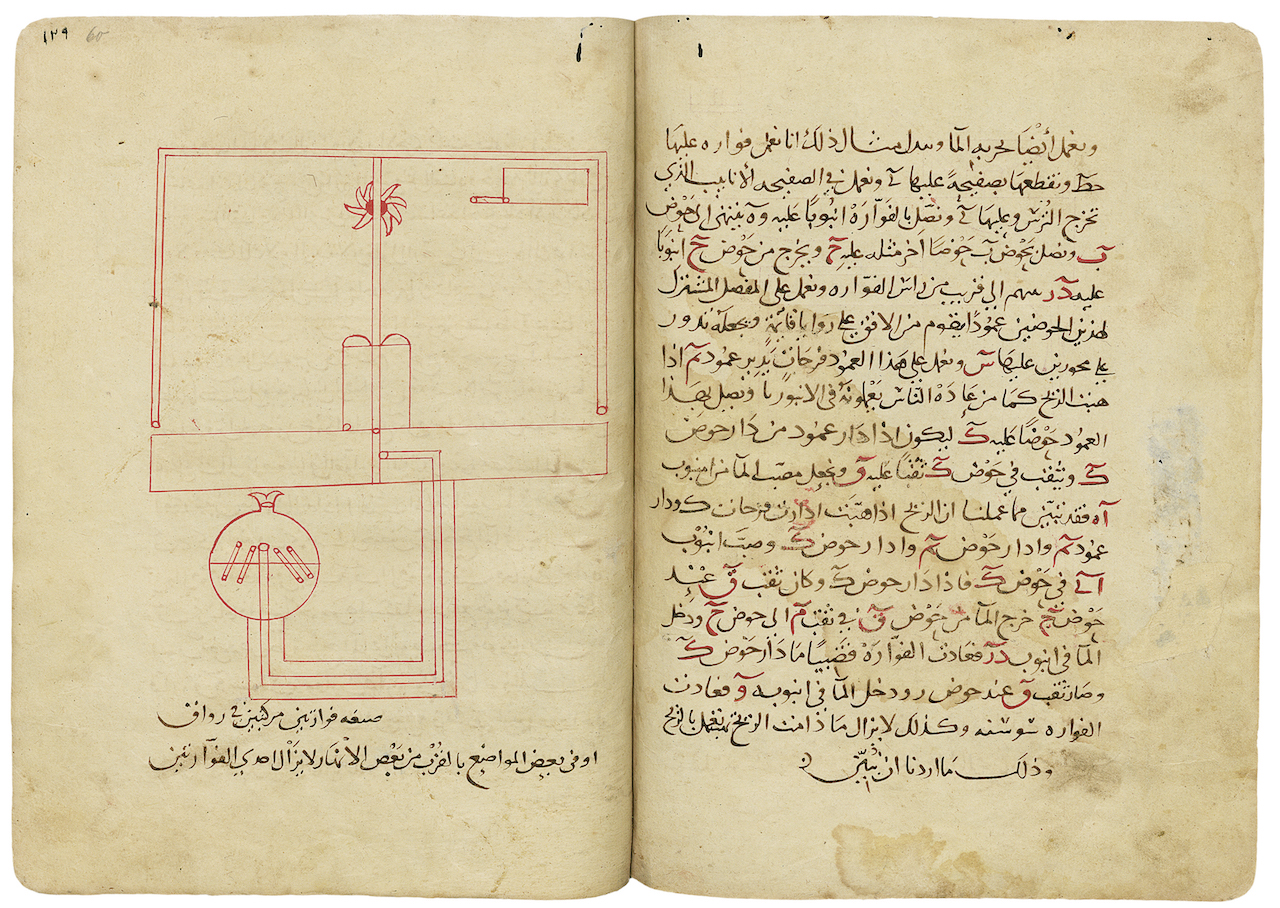 ونعمل ايضا بجريه الما وبدل مثال ذلك انا نعمل فواره عليها
حط ونقطعها بصفيحة عليها ونعمل في الصفيحه الانابيب الذي
تخرج الترس وعليها ونصل بالفوارة انبوبا عليه وه ينتهى الى حوض
ب ونصل بحوض ب حوضا اخر مثله عليه ح ونخرج من حوض ح انبوبا
عليه در سهم الى قريب من راس الفواره ونعمل على المفصل المشترك
لهذين الحوضين عمودا يقوم من الافق على زوايا قائمة ونجعله ندور
على محورين عليها س ونعمل على هذا العمود فرحات يدير عمود اذا
هبت الريح كما من عادة الناس يعملونه في ونصل بهذا
العمود حوضا عليه ك ليكون اذا دار عمود من دار حوض
ك ونثقب في حوض ك ثقبا عليه ق ونجعل مصب الما من انبوب
اه فقد تبين مما عملنا ان الريح اذا هبت ادارت فرحات ك ودار
عمود وادار حوض وادار حوض ك وصب انبوب
في حوض ك فاذا دار حوض ك وكان ثقب ق عند
حوض ح خرج الما من حوض ق في ثقب الى حوض ح ودخل
الما في انبوب در فعادت الفوارة قضيبا ما دار حوض ك
وصار ثقب ق عند حوض ودخل الما في انبوبه و فعادت
الفواره سوسنه وكذلك لا يزال ما دامت الريح تعمل بالريح
وذلك ما اردنا ان نبين
١٢٩ 60
صنعه فوارتين مركبتين في رواق
او في بعض المواضع بالقرب من بعض الانهار لا يزال احدي الفوارتين